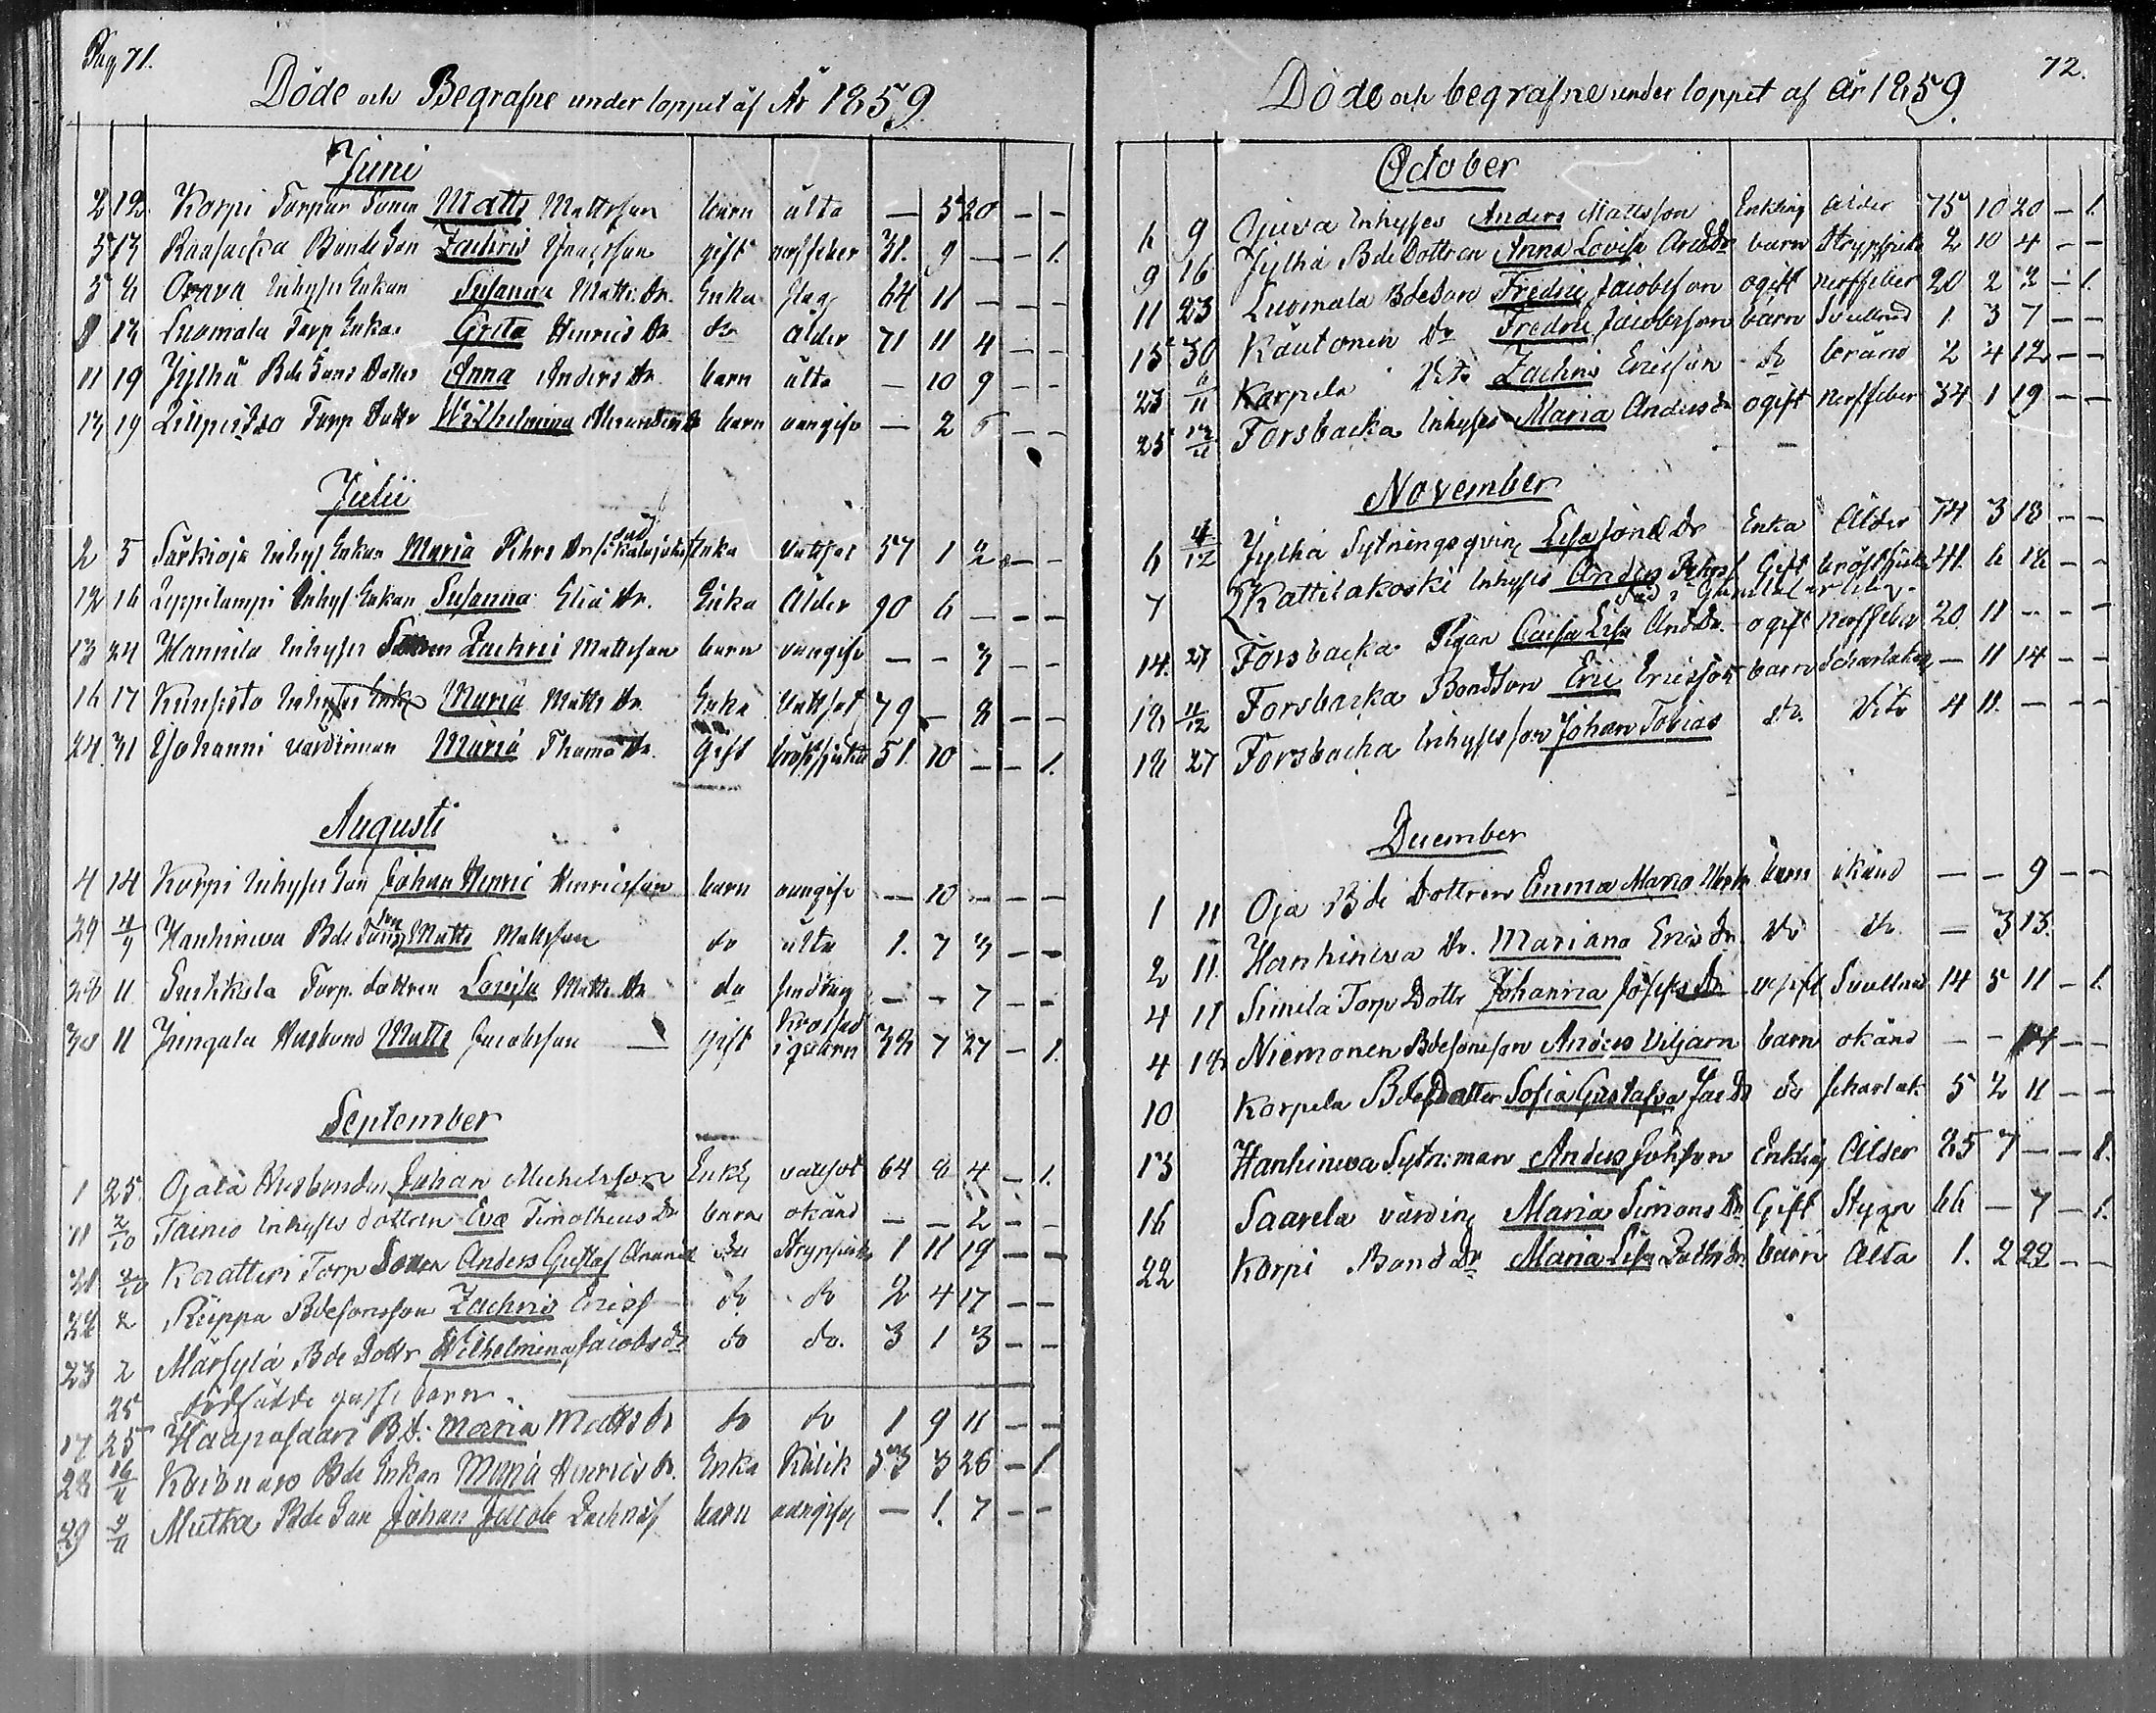 Pag 71.
Döde och Begrafne under loppet af År 1859.
Juni
2 12 Korpi Torpar Sonen Matts Mattsson barn älta — 5 20 — —
5 13 Bonde Son Zachris gift nerffeber 31. 9 — — 1.
5 Orava Inhyses Enkan Susanna Matts Dr. Enka slag 64 11 — — —
8 13 Luomala Torp Enkan Greta Henrics Dr do Ålder 71 11 4 — —
11 19 Jylhä Bde Sons Dotter Anna Anders Dr. barn älta — 10 9 — —
13 19 Torp Dottr Wilhelmina barn — 2 — —
Julii
2 5 Särkioja Inhys Enkan Maria Pehrs Dr Enka Vattsot 57 1 2 — —
12 16 Leppilampi Inhys Enkan Susanna Eliæ Dr. Enka Ålder 90 6 — — —
13 24 Hannila Inhyses Sonen Zachris Mattsson barn — — 3 — —
16 17 Kiviristo Inhyses Maria Matts Dr. Enka Vattsot 79 — 8 — —
24. 31 Yohanni värdinnan Maria Thomæ Dr. Gift bröstsjuka 51. 10 — — 1.
Augusti
4 14 Korpi Inhyses Son Johan Henric Henricsson barn — 10 — — —
29 4/9 Hanhineva Bde Sons son Matts Mattsson do älta 1. 7 3 — —
11 Torp. dottren Lovisa Matts Dr do — — 7 — —
11 Jungala Husbond Matts Jacobsson — gift Krossad i qvarn 32 7 27 — 1.
September
1 25. Ojala Husbonden Johan Michelsson Enkl vattsot 64 8 4 — 1.
11 2/10 Tainio inhyses dottren Eva Timotheus Dr barn okänd — — 2 — —
2/10 Torp Sonen Anders Gustaf do Strypsjuka 1 11 19 — —
22 2 Riippa Bdesonsson Zachris Ericss do do 2 4 17 — —
23 2 Märsylä Bde Dottr Wilhelmina Jacobs dr do do. 3 1 3 — —
25 dödfödde barn.
17 25 Haapasaari Bd. Maria Matts dr do do 1 9 11 — —
28 16/11 Bde Enkan Maria Henrics dr. Enka Kolik 53 3 26 — 1.
29 Mutka Bde Son Johan Jacob Zachriss barn — 1. 7 — —
72.
Döde och begrafne under loppet af År 1859.
October
6 9 Ojuva Inhyses Anders Mattsson Enkling ålder 75 10 20 — 1.
9 16 Jylhä Bde Dottren Anna Lovisa And Dr barn Strypsjuka 2 10 4 — —
11 23 Luomala Bdeson Fredric Jacobsson ogift nerffeber 20 2 3 — 1.
15 30 Käutonen do Fredric Jacobsson barn Svullnad 1. 3 7 — —
23 6/11 Karpela Dito Zachris Ericsson do 2 4 12 — —
25 13/11 Forsbacka Inhyses Maria Anders dr ogift Nerffeber 34 1 19 — —
November
6 4/12 Jylhä Sytningsqvin Lisa Jons Dr Enka Ålder 74 3 18 — —
7 Kattilakoski Inhyses Anders Pehrs Gift bröstsjuka 41. 6 18 — —
14. 27 Forsbacka Pigan Caisa Lisa And Dr. ogift Nerffeber 20. 11 — — —
18 11/12 Forsbacka Bondson Eric Ericsson barn Scharlakan — 11 14 — —
18 27 Forsbacka Inhyses son Johan Tobias do. Dito 4 11. — — —
December
1 11 Oja Bde Dottren Emma Maria barn okänd — — 9 — —
2 11. Hanhineva Dr. Mariana Erics Dr. do do. — 3 13.
4 11 Simila Torp Dottr Johanna Josefs Dr ogift Svullnad 14 5 11 — 1.
4 18 Niemonen Bdesonsson Anders Viljam barn okänd — — 14 — —
10 Korpela Bde Dotter Sofia Gustafva Jac Dr do scharlak. 5 2 11 — —
13 Hanhineva Sytn:man Anders Johsson Enkling Ålder 85 7 — — 1.
16 Saarela värdin Maria Simons Dr Gift Stygn 66 — 7 — 1.
22 Korpi Bond dr Maria Lisa Zachrs dr. barn älta 1. 2 22 — —